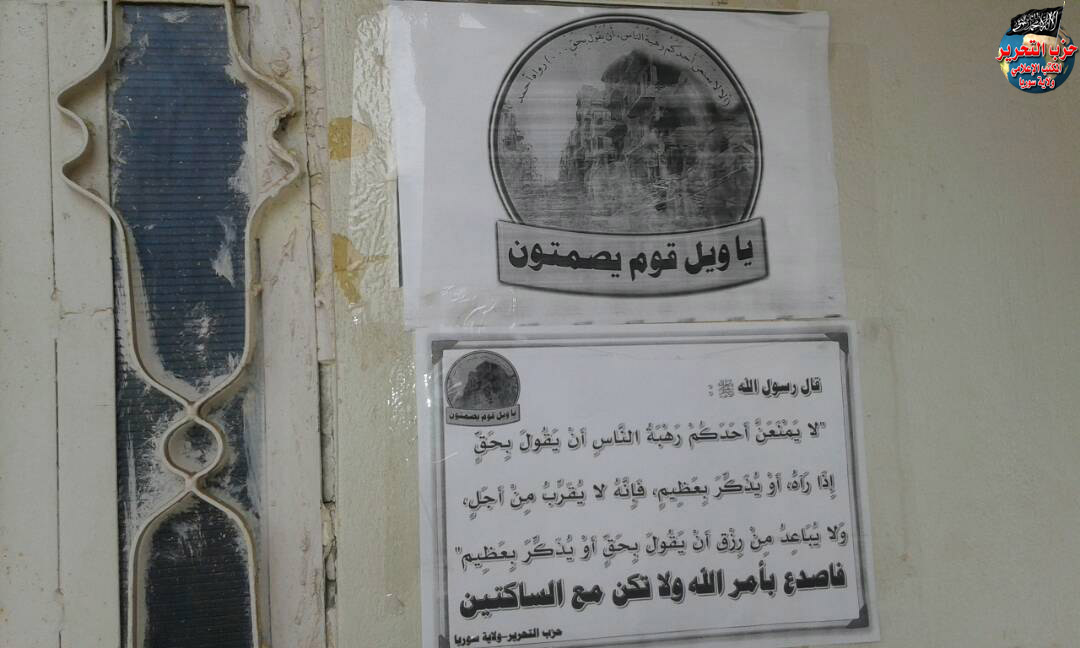 حزب التحرير
المكتب الإعلامي
ولاية سوريا
(ألا لا يمنعن أحدكم رهبة الناس، أن يقول بحق...) رواه أحمد
يا ويل قوم يصمتون
يا ويل قوم يصمتون
قال رسول الله ﷺ :
"لا يَمْنَعَنَّ أَحَدَكُمْ رَهْبَةُ النَّاسِ أَنْ يَقُولَ بِحَقٍّ
إِذَا رَآهُ، أَوْ يُذَكِّرَ بِعَظِيمٍ، فَإِنَّهُ لا يُقَرِّبُ مِنْ أَجَلٍ،
وَلا يُبَاعِدُ مِنْ رِزْقٍ أَنْ يَقُولَ بِحَقٍّ أَوْ يُذَكِّرَ بِعَظِيمٍ"
فاصدع بأمر الله ولا تكن مع الساكتين
حزب التحرير-ولاية سوريا